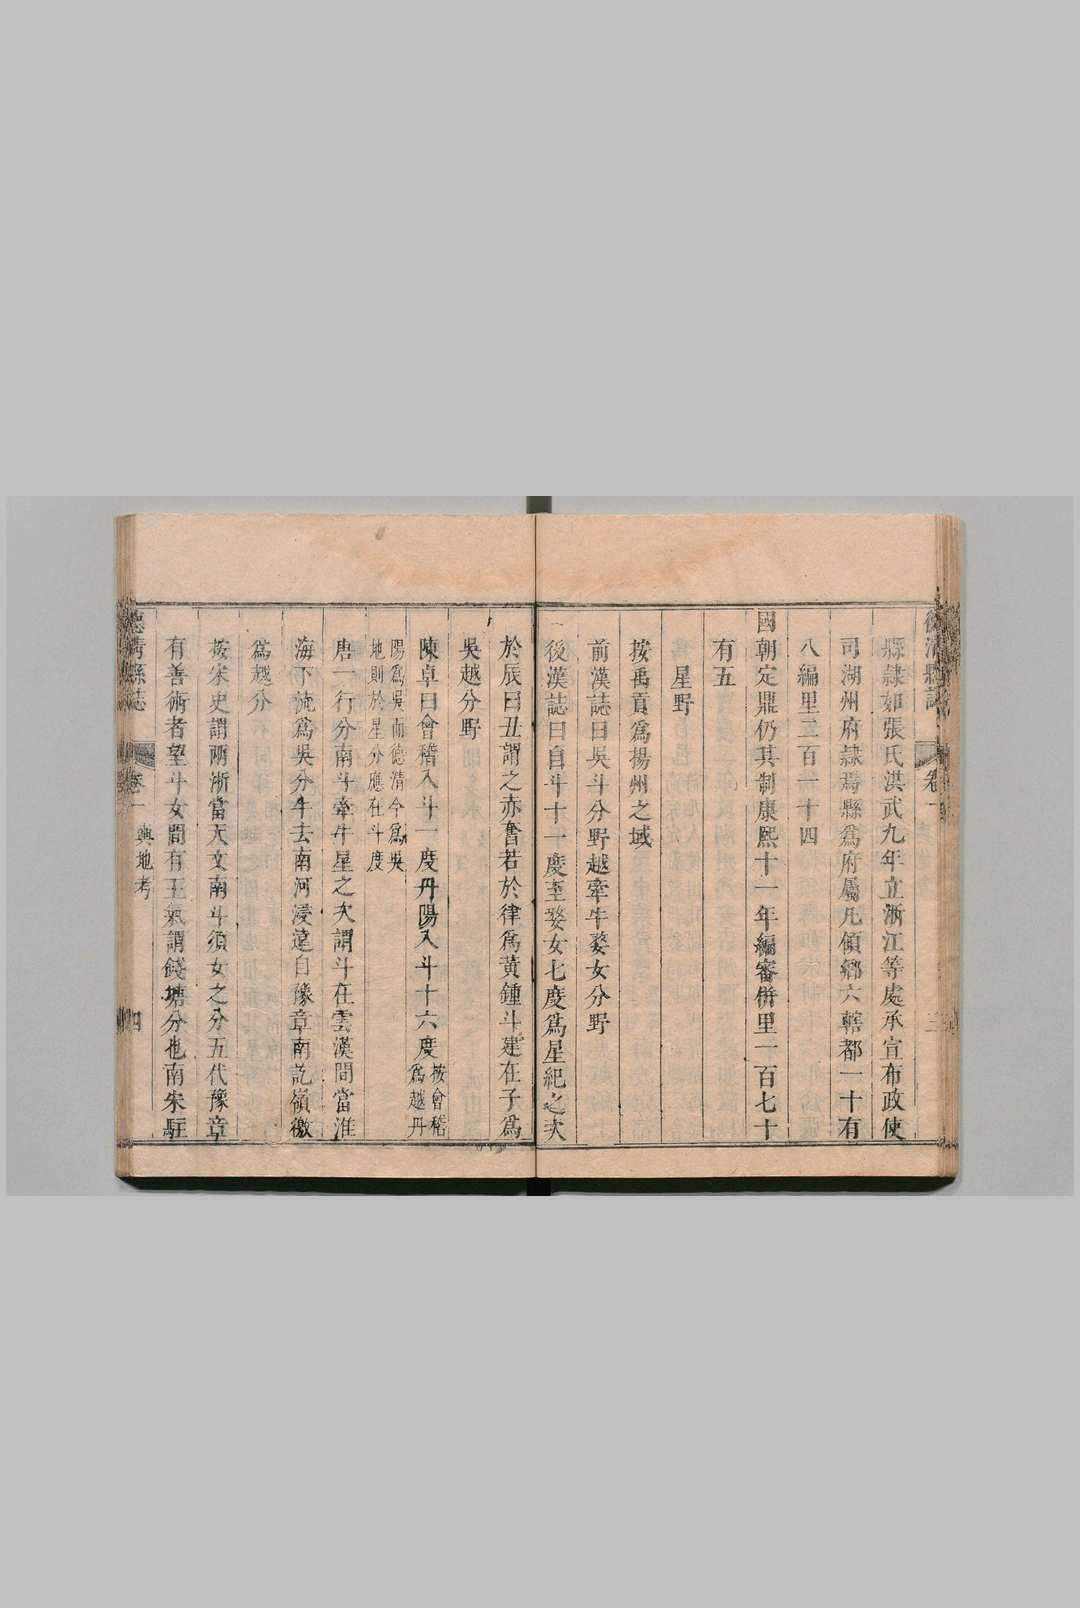 德清縣誌
卷一
三
縣隷如張氏洪武九年立浙江等處承宣布政使
司湖州府隷焉縣爲府屬凡領鄉六轄都一十有
八編里三百一十四
國朝定鼎仍其制康熙十一年編審併里一百七十
有五
星野
按禹貢爲揚州之域
前漢誌曰吳斗分野越牽牛婺女分野
後漢誌曰自斗十一度至婺女七度爲星紀之次
於辰曰丑謂之赤奮若於律爲黃鍾斗建在子爲
吳越分野
陳卓曰會稽入斗一度丹陽入斗十六度按會稽爲越丹
陽爲吳而德清今爲吳地則於星分應在斗度
唐一行分南斗牽牛星之次謂斗在雲漢間當淮
海下流爲吳分牛去南河浸遠自豫章南訖嶺徼
爲越分
按宋史謂兩浙當天文南斗須女之分五代豫章
有善術者望斗女間有王氣謂錢塘分也南朱駐
德清縣誌
卷一
輿地考
四